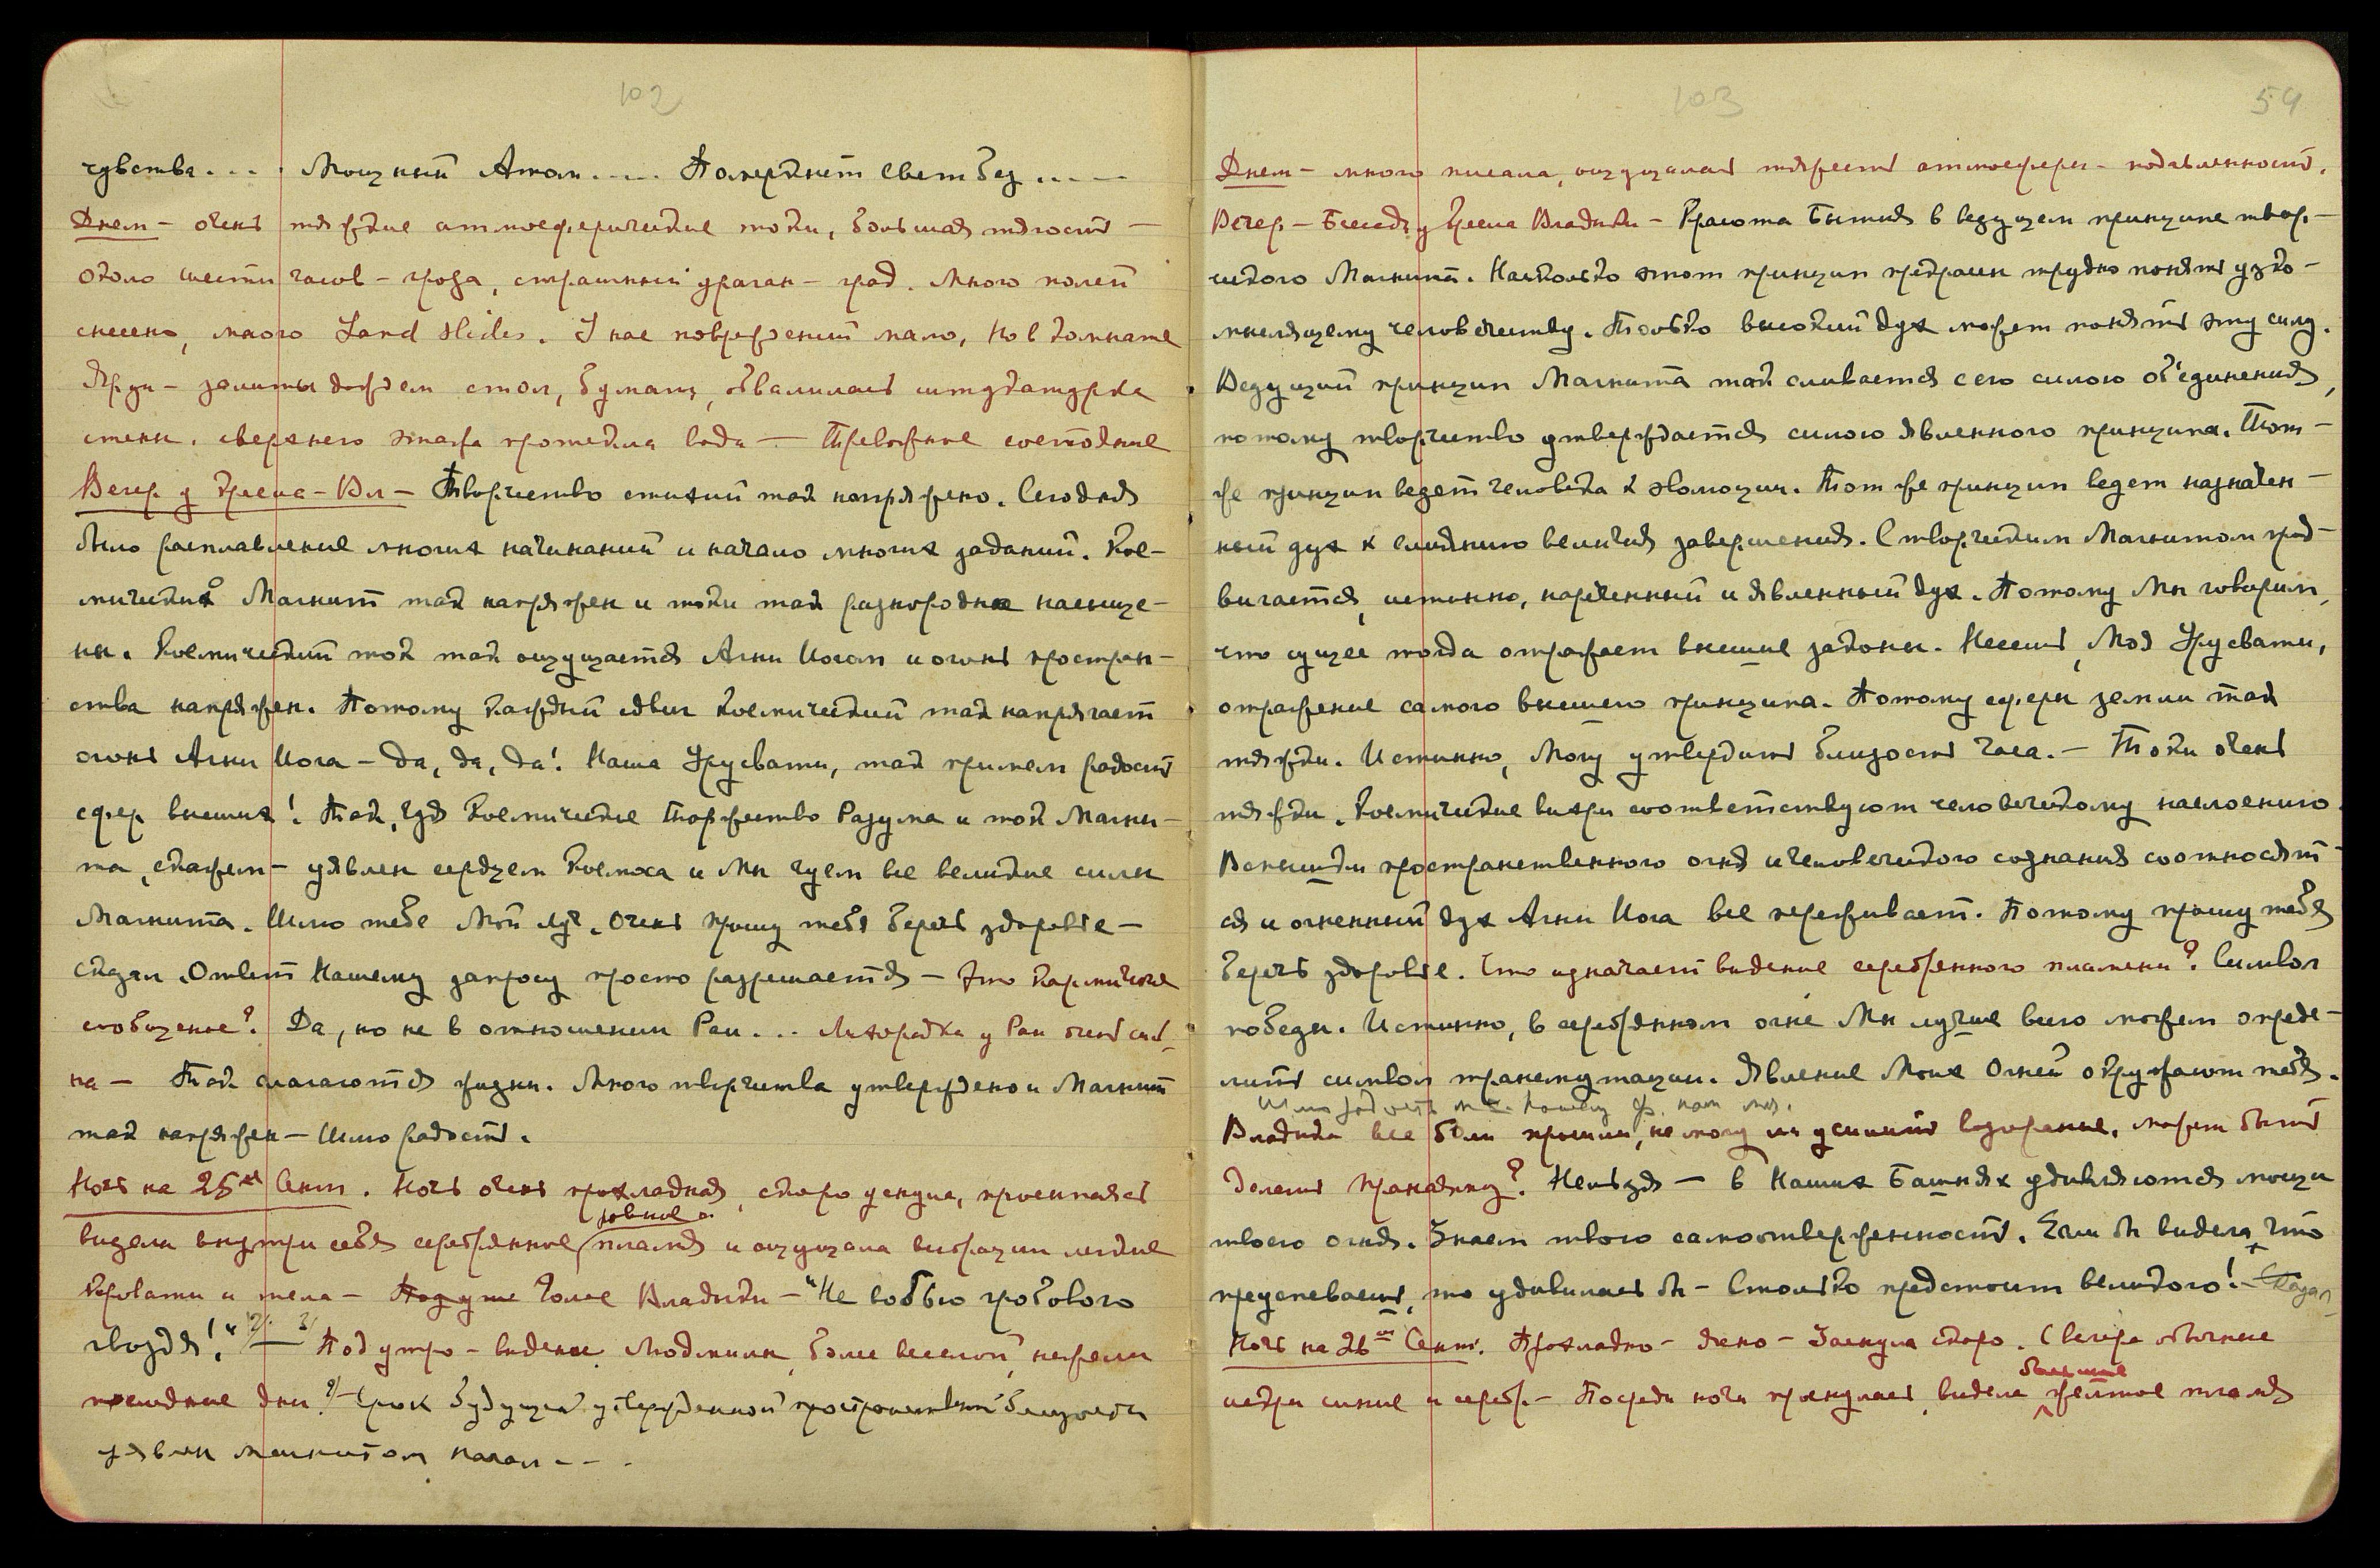 102
чувства.... Мощный Атом..... Померкнет свет без.....
Днем – очень тяжкие атмосферические токи, большая тягость –
около шести часов – гроза, страшный ураган – град. Много полей
снесено, много Land Slides. У нас повреждений мало, но в комнате
Яруи – залиты дождем стол, бумаги, обвалилась штукатурка
стены. с верхнего этажа протекла вода — Тревожное состояние
Вечер у Кресла – Вл – Творчество стихий так напряжено. Сегодня
было расплавление многих начинаний и начало многих заданий. Кос-
мический Магнит так напряжен и токи так разнородно насыще-
ны. Космический ток так ощущается Агни Йогом и огонь простран-
ства напряжен. Потому каждый сдвиг Космический так напрягает
огонь Агни Йога – да, да, да! Наша Урусвати, так примем радость
сфер высших! Так, где Космическое Торжество Разума и ток Магни-
та, скажем – уявлен сердцем Космоса и Мы чуем все великие силы
Магнита. Шлю тебе Мой луч. Очень прошу тебя беречь здоровье –
сказал. Ответ Нашему запросу просто разрешается – Это Кармическое
сообщение? Да, но не в отношении Раи... Лихорадка у Раи очень силь-
на – Так слагаются жизни. Много творчества утверждено и Магнит
так напряжен – Шлю радость.
Ночь на 25ое Сент. Ночь очень прохладная, скоро уснула, проснулась
видела внутри себя серебрянное пламя и ощущала вибрации легкие
кровати и тела – голос Владыки – "Не вобью гробового
гвоздя!" — Под утро – видение Людмилы, более веселой, нежели
последние дни. Срок будущей утвержденной пространственной близости
уявлен магнитом начал - - -
103
59
Днем – много писала, ощущалась тяжесть атмосферы – подавленность.
Вечер – Беседа у Кресла Владыки – Красота Бытия в ведущем принципе твор-
ческого Магнита. Насколько этот принцип прекрасен трудно понять узко-
мыслящему человечеству. Только высокий дух может понять эту силу.
Ведущий принцип Магнита так сливается с его силою объединения,
потому творчество утверждается силою явленного принципа. Тот-
же принцип ведет человека к эволюции. Тот же принцип ведет назначен-
ный дух к слиянию величия завершения. С творческим Магнитом прод-
вигается, истинно, нареченный и явленный дух. Потому Мы говорим,
что сущее тогда отражает высшие законы. Несешь, Моя Урусвати,
отражение самого высшего принципа. Потому сферы земли так
тяжки. Истинно, Могу утвердить близость часа. – Токи очень
тяжки. Космические вихри соответствуют человеческому наслоению.
Вспышки пространственного огня и человеческого сознания соотносят-
ся и огненный дух Агни Йога все переживает. Потому прошу тебя
беречь здоровье. Что означает видение серебрянного пламени? Символ
победы. Истинно, в серебрянном огне Мы лучше всего можем опреде-
лить символ трансмутации. Явление Моих Огней окружают тебя.
Владыка все были прошли, не могу ли усилить воззрение, может быть
делать Пранаяму? Нельзя – в Наших Башнях удивляются мощи
твоего огня. Знаем твою самоотверженность. Если бы видела, что
преуспеваешь, то удивилась бы – Столько предстоит великого! –
Ночь на 26ое Сент. Прохладно – ясно – Заснула скоро. С вечера обычные
искры синие и серебр. – Посреди ночи проснулась, видела большое желтое пламя